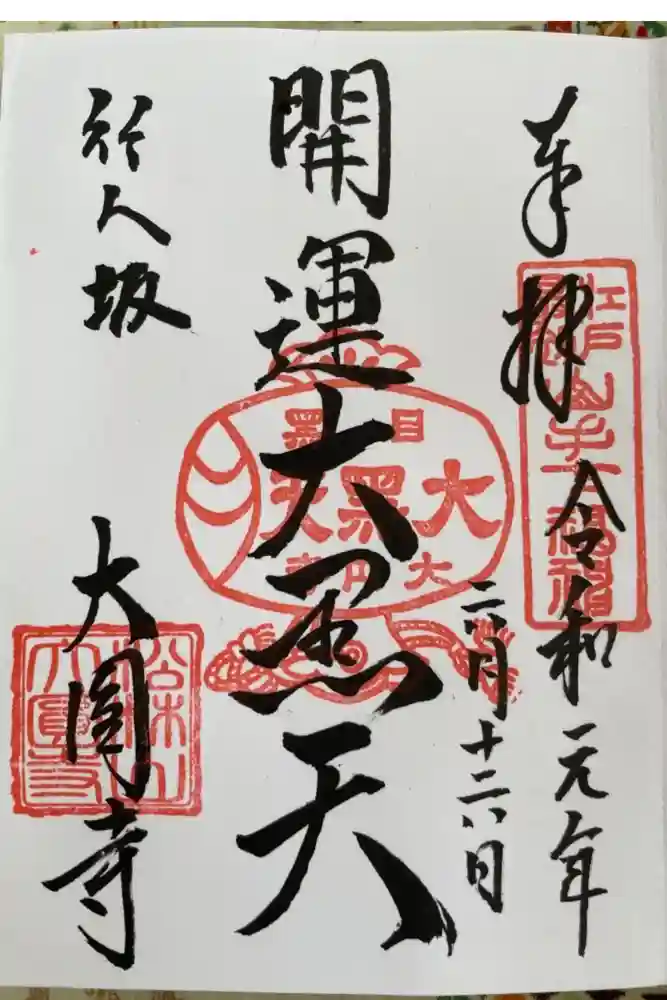 奉拝 令和元年
江戸最初山手七福神
六月十六日
開運大黒天
目黒
大黒天
大円寺
行人坂
大圓寺
松林山
大圓寺